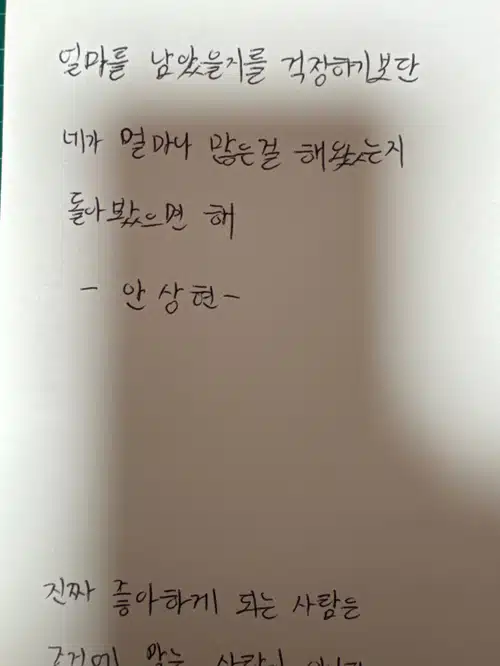 얼마를 남았을지를 걱정하기보단
네가 얼마나 많은걸 해왔는지
돌아봤으면 해
- 안상현 -
진짜 좋아하게 되는 사람은